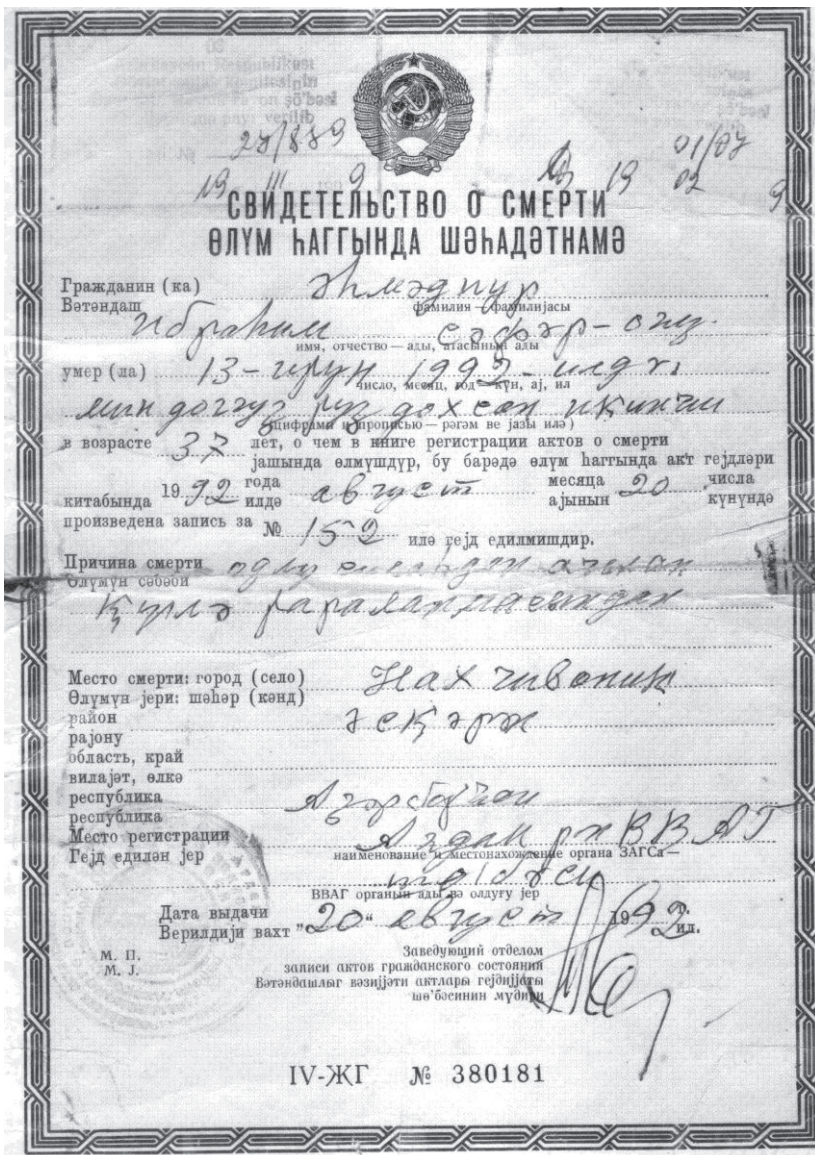 27/889
01/07
19 III 9
19 02 9
СВИДЕТЕЛЬСТВО О СМЕРТИ
ӨЛҮМ ҺАГГЫНДА ШӘҺАДӘТНАМӘ
Гражданин (ка) Әһмәдпур
Вәтәндаш фамилия — фамилијасы
Ибраһим Сәфәр-оғлу
имя, отчество — ады, атасынын ады
умер (ла) 13-ијун 1992-илдә
число, месяц, год — күн, ај, ил
мин доггуз јүз дохсан икинчи
(цифрами и прописью — рәгәм ве јазы илә)
в возрасте 37 лет, о чем в книге регистрации актов о смерти
јашында өлмүшдүр, бу барәдә өлүм һаггында акт гејдләри
китабында 1992 года илдә август месяца ајынын 20 числа күнүндә
произведена запись за № 152 илә гејд едилмишдир.
Причина смерти одлу силаһдан ачылан
Өлүмүн сәбәби
күллә јараланмасындан
Место смерти: город (село) Нахчиваник
Өлүмүн јери: шәһәр (кәнд)
район Әскәран
рајону
область, край
вилајәт, өлкә
республика Азәрбајҹан
республика
Место регистрации Агдам рн ВВАГ
Гејд едилән јер наименование и местонахождение органа ЗАГСа —
шө'бәси
ВВАГ органын ады вә олдуғу јер
Дата выдачи
Верилдији вахт "20" август 1992 г. ил.
М. П.
М. Ј.
Заведующий отделом
записи актов гражданского состояний
Вәтәндашлыг вәзијјәти актлары гејдијјаты
шө'бәсинин мүдири
IV-ЖГ № 380181